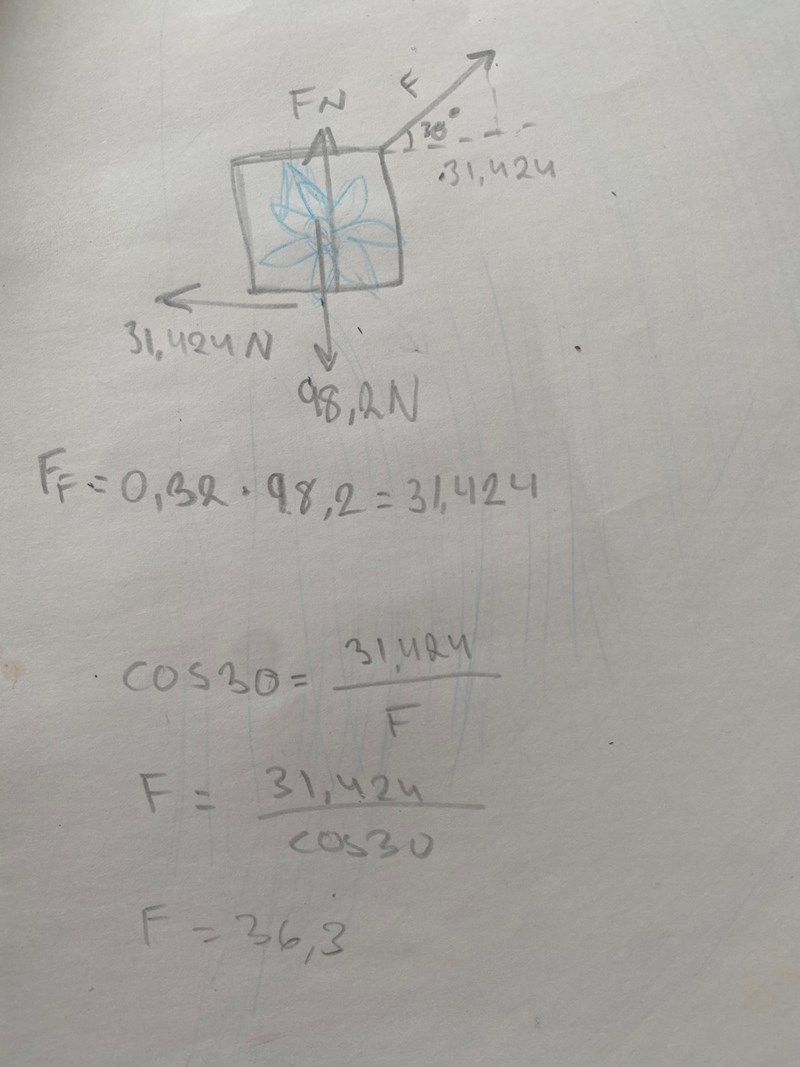 FN
F
30°
31,424
31,424 N
98,2N
FF = 0,32 · 98,2 = 31,424
cos30 = 31,424 / F
F = 31,424 / cos30
F = 36,3